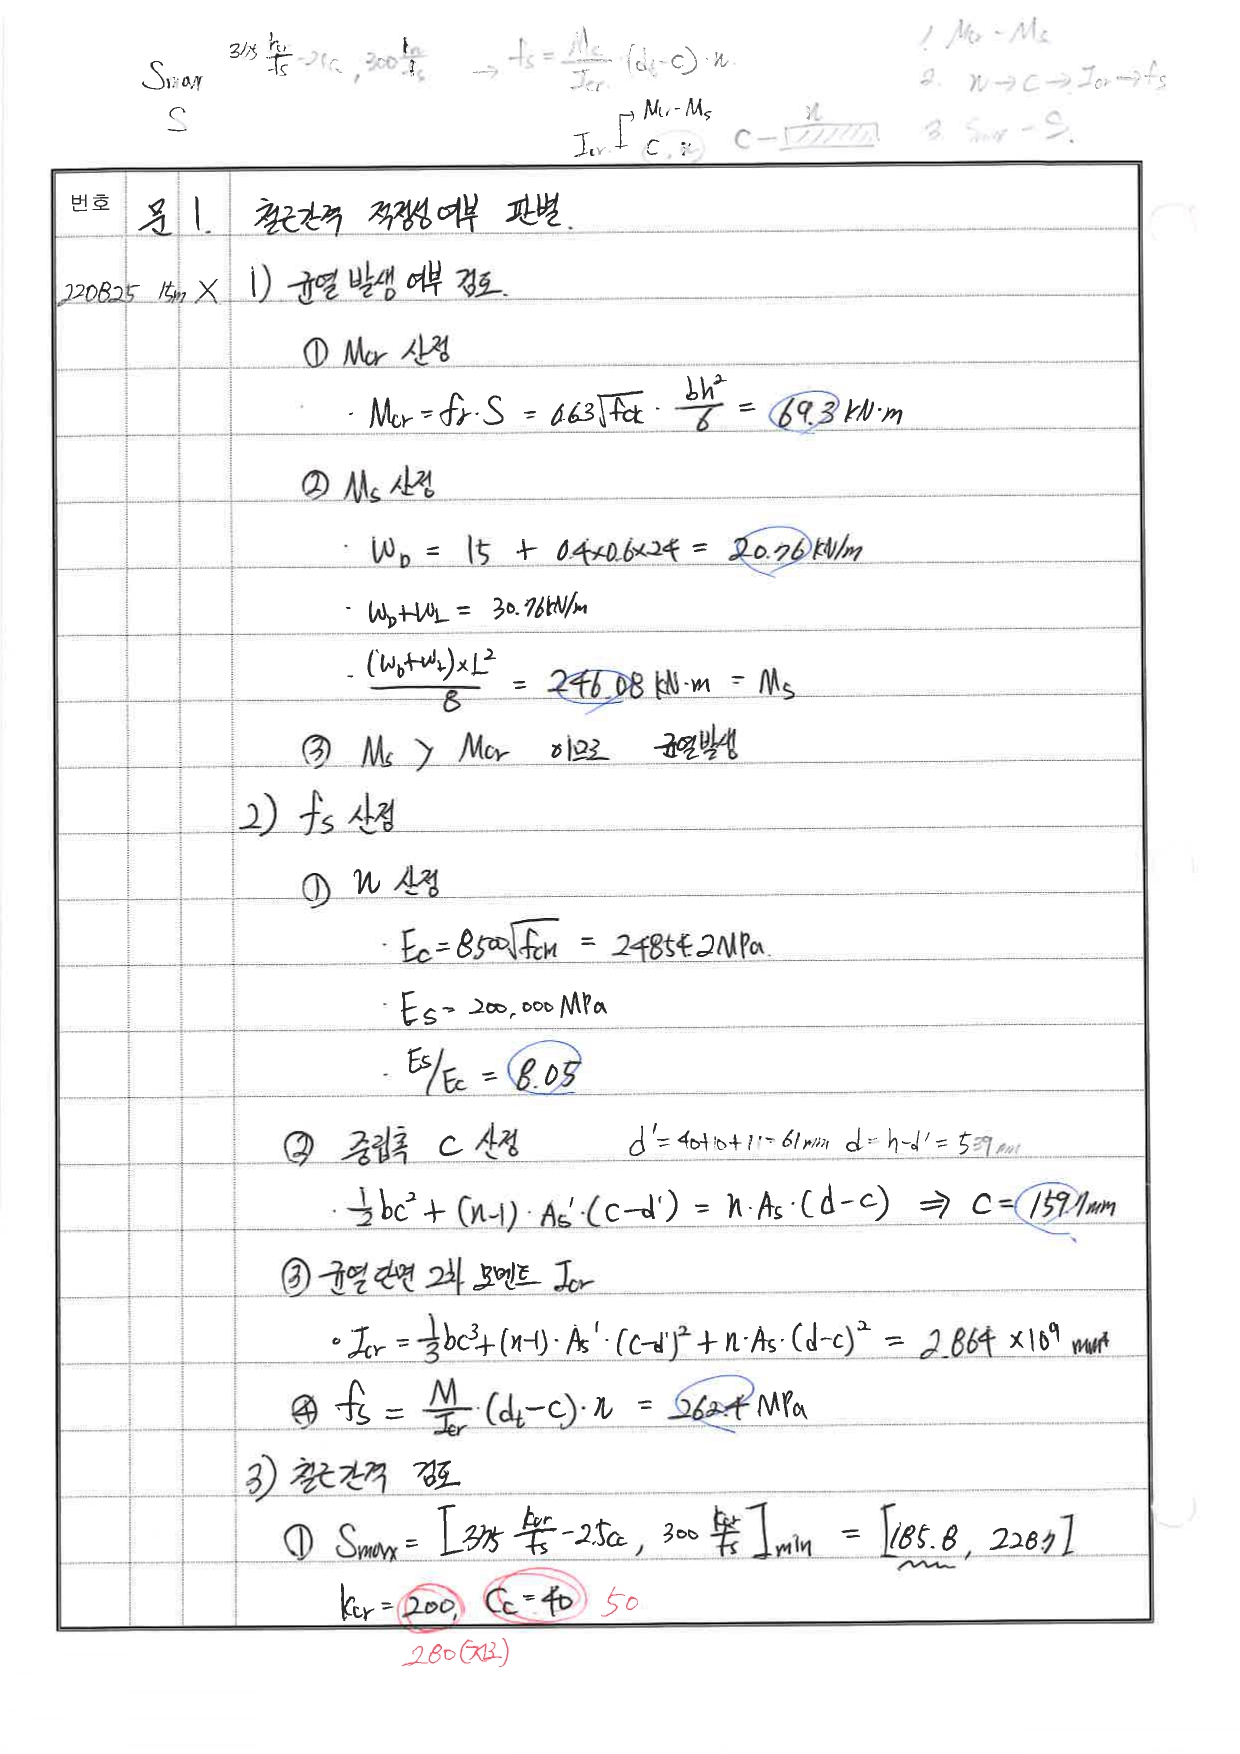 Smax 375 kcr/fs -2.5Cc, 300 kcr/fs → fs = Ms/Icr · (dt-c)·n
S
Icr Mcr-Ms
C, n
C - n
1. Mcr - Ms
2. n→C→Icr→fs
3. Smax - S.
번호 문 1. 철근간격 적정성여부 판별.
220825 15m X 1) 균열 발생 여부 검토.
① Mcr 산정
· Mcr = fr·S = 0.63√fck · bh²/6 = 69.3 kN·m
② Ms 산정
· WD = 15 + 0.4×0.6×24 = 20.76 kN/m
· WD+WL = 30.76kN/m
· (WD+WL)×L²/8 = 246.08 kN·m = Ms
③ Ms > Mcr 이므로 균열발생
2) fs 산정
① n 산정
· Ec = 8500√fcm = 24854.2MPa.
· Es = 200,000 MPa
· Es/Ec = 8.05
② 중립축 C 산정 d' = 40+10+11 = 61mm d = h-d' = 539mm
· 1/2bc² + (n-1)·As'·(c-d') = n·As·(d-c) ⇒ C = 159.7mm
③ 균열단면 2차 모멘트 Icr
∘ Icr = 1/3bc³+(n-1)·As'·(c-d')²+n·As·(d-c)² = 2.864 ×10⁹ mm⁴
④ fs = M/Icr·(dt-c)·n = 262.4 MPa
3) 철근간격 검토
① Smax = [375 kcr/fs -2.5Cc, 300 kcr/fs]min = [185.8, 228.7]
kcr = 200, Cc = 40 50
280(건조)